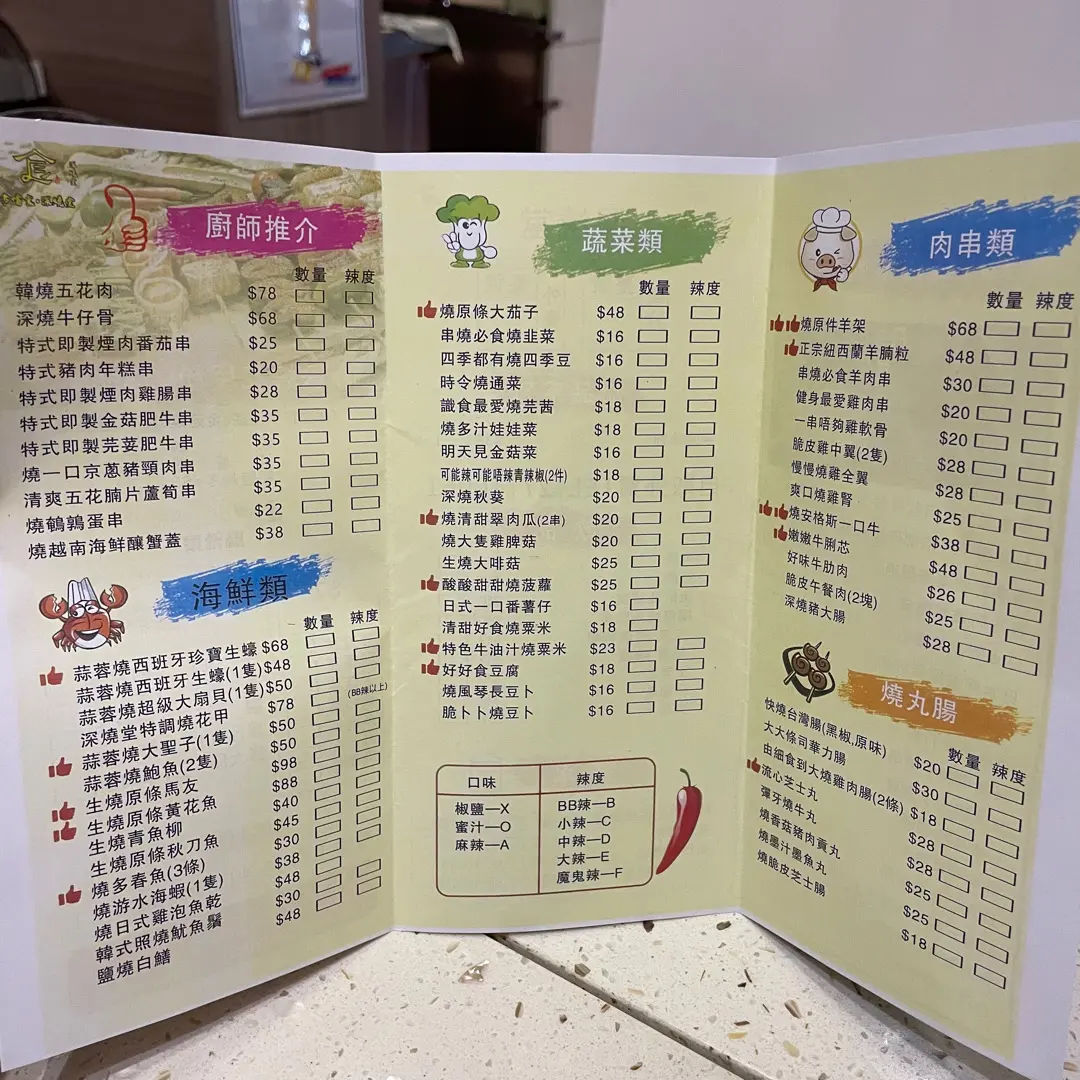 廚師推介
數量 辣度
韓燒五花肉 $78
深燒牛仔骨 $68
特式即製煙肉番茄串 $25
特式豬肉年糕串 $20
特式即製煙肉雞腸串 $28
特式即製金菇肥牛串 $35
特式即製芫荽肥牛串 $35
燒一口京蔥豬頸肉串 $35
清爽五花腩片蘆筍串 $35
燒鵪鶉蛋串 $22
燒越南海鮮釀蟹蓋 $38
海鮮類
數量 辣度
蒜蓉燒西班牙珍寶生蠔 $68
蒜蓉燒西班牙生蠔(1隻) $48
蒜蓉燒超級大扇貝(1隻) $50
深燒堂特調燒花甲 $78 (BB辣以上)
蒜蓉燒大聖子(1隻) $50
蒜蓉燒鮑魚(2隻) $50
生燒原條馬友 $98
生燒原條黃花魚 $88
生燒青魚柳 $40
生燒原條秋刀魚 $45
燒多春魚(3條) $30
燒游水海蝦(1隻) $38
燒日式雞泡魚乾 $48
韓式照燒魷魚鬚 $30
鹽燒白鱔 $48
蔬菜類
數量 辣度
燒原條大茄子 $48
串燒必食燒韭菜 $16
四季都有燒四季豆 $16
時令燒通菜 $16
識食最愛燒芫茜 $18
燒多汁娃娃菜 $18
明天見金菇菜 $16
可能辣可能唔辣青辣椒(2件) $18
深燒秋葵 $20
燒清甜翠肉瓜(2串) $20
燒大隻雞脾菇 $20
生燒大啡菇 $25
酸酸甜甜燒菠蘿 $25
日式一口番薯仔 $16
清甜好食燒粟米 $18
特色牛油汁燒粟米 $23
好好食豆腐 $18
燒風琴長豆卜 $16
脆卜卜燒豆卜 $16
口味 辣度
椒鹽—X BB辣—B
蜜汁—O 小辣—C
麻辣—A 中辣—D
大辣—E
魔鬼辣—F
肉串類
數量 辣度
燒原件羊架 $68
正宗紐西蘭羊腩粒 $48
串燒必食羊肉串 $30
健身最愛雞肉串 $20
一串唔夠雞軟骨 $20
脆皮雞中翼(2隻) $28
慢慢燒雞全翼 $28
爽口燒雞腎 $25
燒安格斯一口牛 $38
嫩嫩牛脷芯 $48
好味牛肋肉 $26
脆皮午餐肉(2塊) $25
深燒豬大腸 $28
燒丸腸
數量 辣度
快燒台灣腸(黑椒,原味) $20
大大條司華力腸 $30
由細食到大燒雞肉腸(2條) $18
流心芝士丸
彈牙燒牛丸 $28
燒香菇豬肉貢丸 $25
燒墨汁墨魚丸 $25
燒脆皮芝士腸 $18